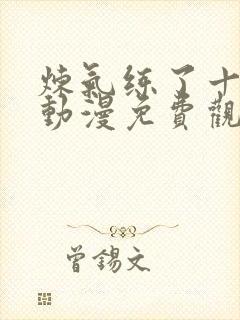 煉氣练了十
動漫免費觀
曾錫文